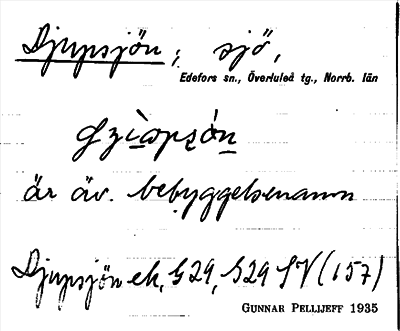 Djupsjön; sjö,
Edefors sn., Överluleå tg., Norrb. län
är äv. bebyggelsenamn
Djupsjön ek, G29, S29 SV (157)
GUNNAR PELLIJEFF 1935